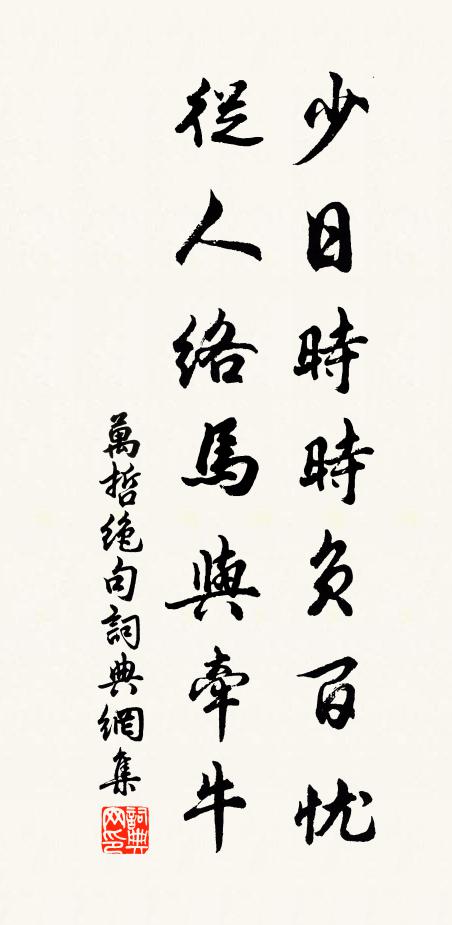 少日時時負百忧
從人絡馬與牽牛
萬哲絶句詞典網集
詞典网印